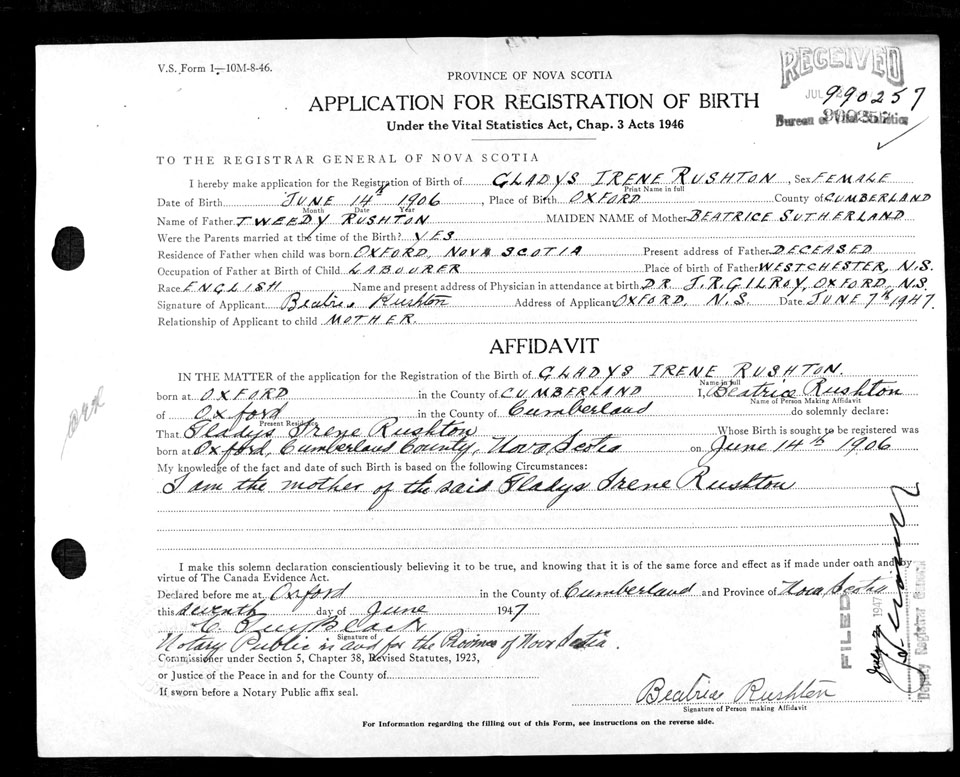 V.S. Form 1—10M-8-46.
PROVINCE OF NOVA SCOTIA
RECEIVED
JUL
990257
Bureau of Vital Statistics
APPLICATION FOR REGISTRATION OF BIRTH
Under the Vital Statistics Act, Chap. 3 Acts 1946
TO THE REGISTRAR GENERAL OF NOVA SCOTIA
I hereby make application for the Registration of Birth of GLADYS IRENE RUSHTON, Sex FEMALE
Print Name in full
Date of Birth JUNE 14th 1906, Place of Birth OXFORD County of CUMBERLAND
Month Date Year
Name of Father TWEEDY RUSHTON MAIDEN NAME of Mother BEATRICE SUTHERLAND
Were the Parents married at the time of the Birth? YES.
Residence of Father when child was born OXFORD, NOVA SCOTIA Present address of Father DECEASED
Occupation of Father at Birth of Child LABOURER Place of birth of Father WESTCHESTER, N.S.
Race ENGLISH Name and present address of Physician in attendance at birth DR. J.R. GILROY, OXFORD, N.S.
Signature of Applicant Beatrice Rushton Address of Applicant OXFORD, N.S. Date JUNE 7th 1947.
Relationship of Applicant to child MOTHER.
AFFIDAVIT
IN THE MATTER of the application for the Registration of the Birth of GLADYS IRENE RUSHTON.
Name in full
born at OXFORD in the County of CUMBERLAND I, Beatrice Rushton
Name of Person Making Affidavit
of Oxford in the County of Cumberland do solemnly declare:
Present Residence
That Gladys Irene Rushton Whose Birth is sought to be registered was
born at Oxford, Cumberland County, Nova Scotia on June 14th 1906
My knowledge of the fact and date of such Birth is based on the following Circumstances:
I am the mother of the said Gladys Irene Rushton
I make this solemn declaration conscientiously believing it to be true, and knowing that it is of the same force and effect as if made under oath and by
virtue of The Canada Evidence Act.
Declared before me at Oxford in the County of Cumberland and Province of Nova Scotia
this seventh day of June 1947
Black
Signature of
Notary Public in and for the Province of Nova Scotia.
Commissioner under Section 5, Chapter 38, Revised Statutes, 1923,
or Justice of the Peace in and for the County of
If sworn before a Notary Public affix seal.
Beatrice Rushton
Signature of Person making Affidavit
For Information regarding the filling out of this Form, see instructions on the reverse side.
FILED
July 2 1947
Deputy Registrar General